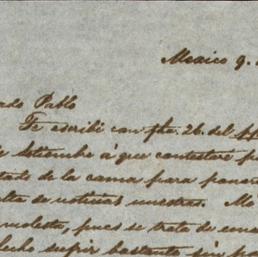 Mexico 9.
ado Pablo
Te escribi con fha. 26. del
Setiembre á que contestaré
tado de la cama para
lta de noticias nuestras. Me
molesta, pues se trata de
cho sufrir bastante sin